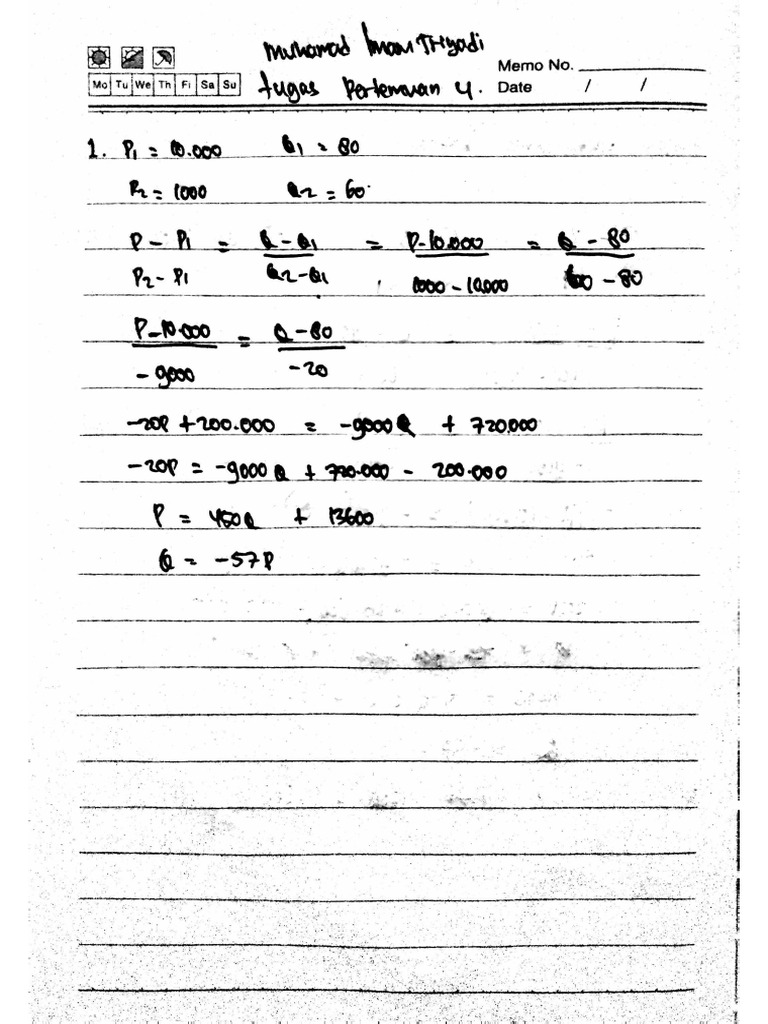 Muhamad Imam Triyadi
Memo No.
Mo Tu We Th Fr Sa Su
Tugas Pertemuan 4.
Date / /
1. P1 = 10.000 Q1 = 80
P2 = 1000 Q2 = 60
P - P1 = Q - Q1 = P - 10.000 = Q - 80
P2 - P1 Q2 - Q1 1000 - 10.000 60 - 80
P - 10.000 = Q - 80
- 9000 - 20
-20P + 200.000 = -9000Q + 720.000
-20P = -9000Q + 720.000 - 200.000
P = 450Q + 13600
Q = -57P